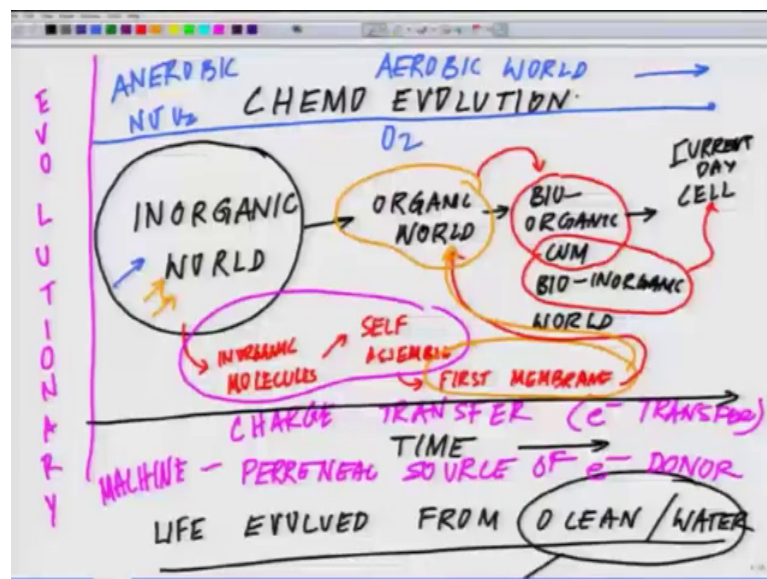 ANEROBIC
AEROBIC WORLD
CHEMO EVOLUTION.
O2
EVOLUTIONARY
INORGANIC
WORLD
ORGANIC
WORLD
BIO-
ORGANIC
CUM
BIO-INORGANIC
WORLD
CURRENT
DAY
CELL
INORGANIC
MOLECULES
SELF
ASSEMBLE
FIRST MEMBRANE
CHARGE TRANSFER (e- TRANSFER)
TIME
MACHINE - PERRENEAL SOURCE OF e- DONOR
LIFE EVOLVED FROM OCEAN/WATER